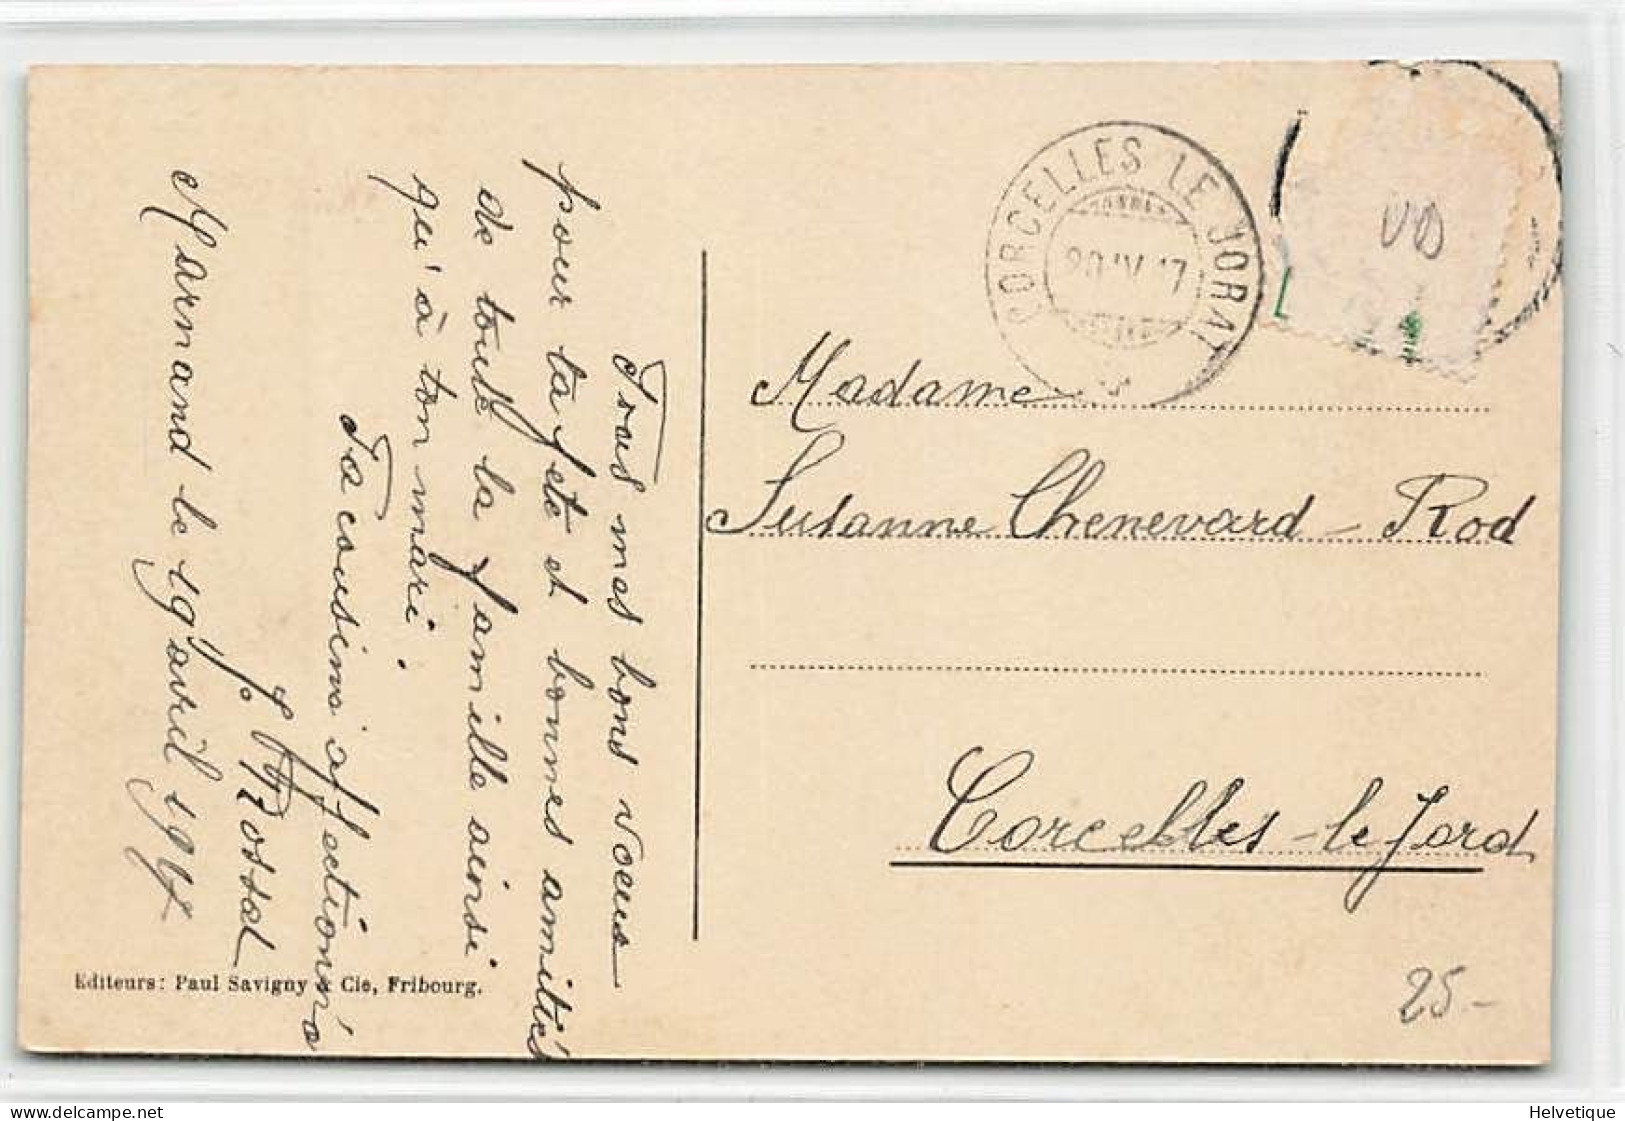 Tous mes bons voeux
pour ta fête et bonnes amitiés
de toute la famille ainsi
qu'à ton mari.
Ta cousins affectionnés
Rossat
Marnand le 19 avril 1917
Editeurs: Paul Savigny & Cie, Fribourg.
CORCELLES LE JORAT
20.IV.17
VD
Madame
Susanne Chenevard-Rod
Corcelles-le Jorat
25.-
Helvetique